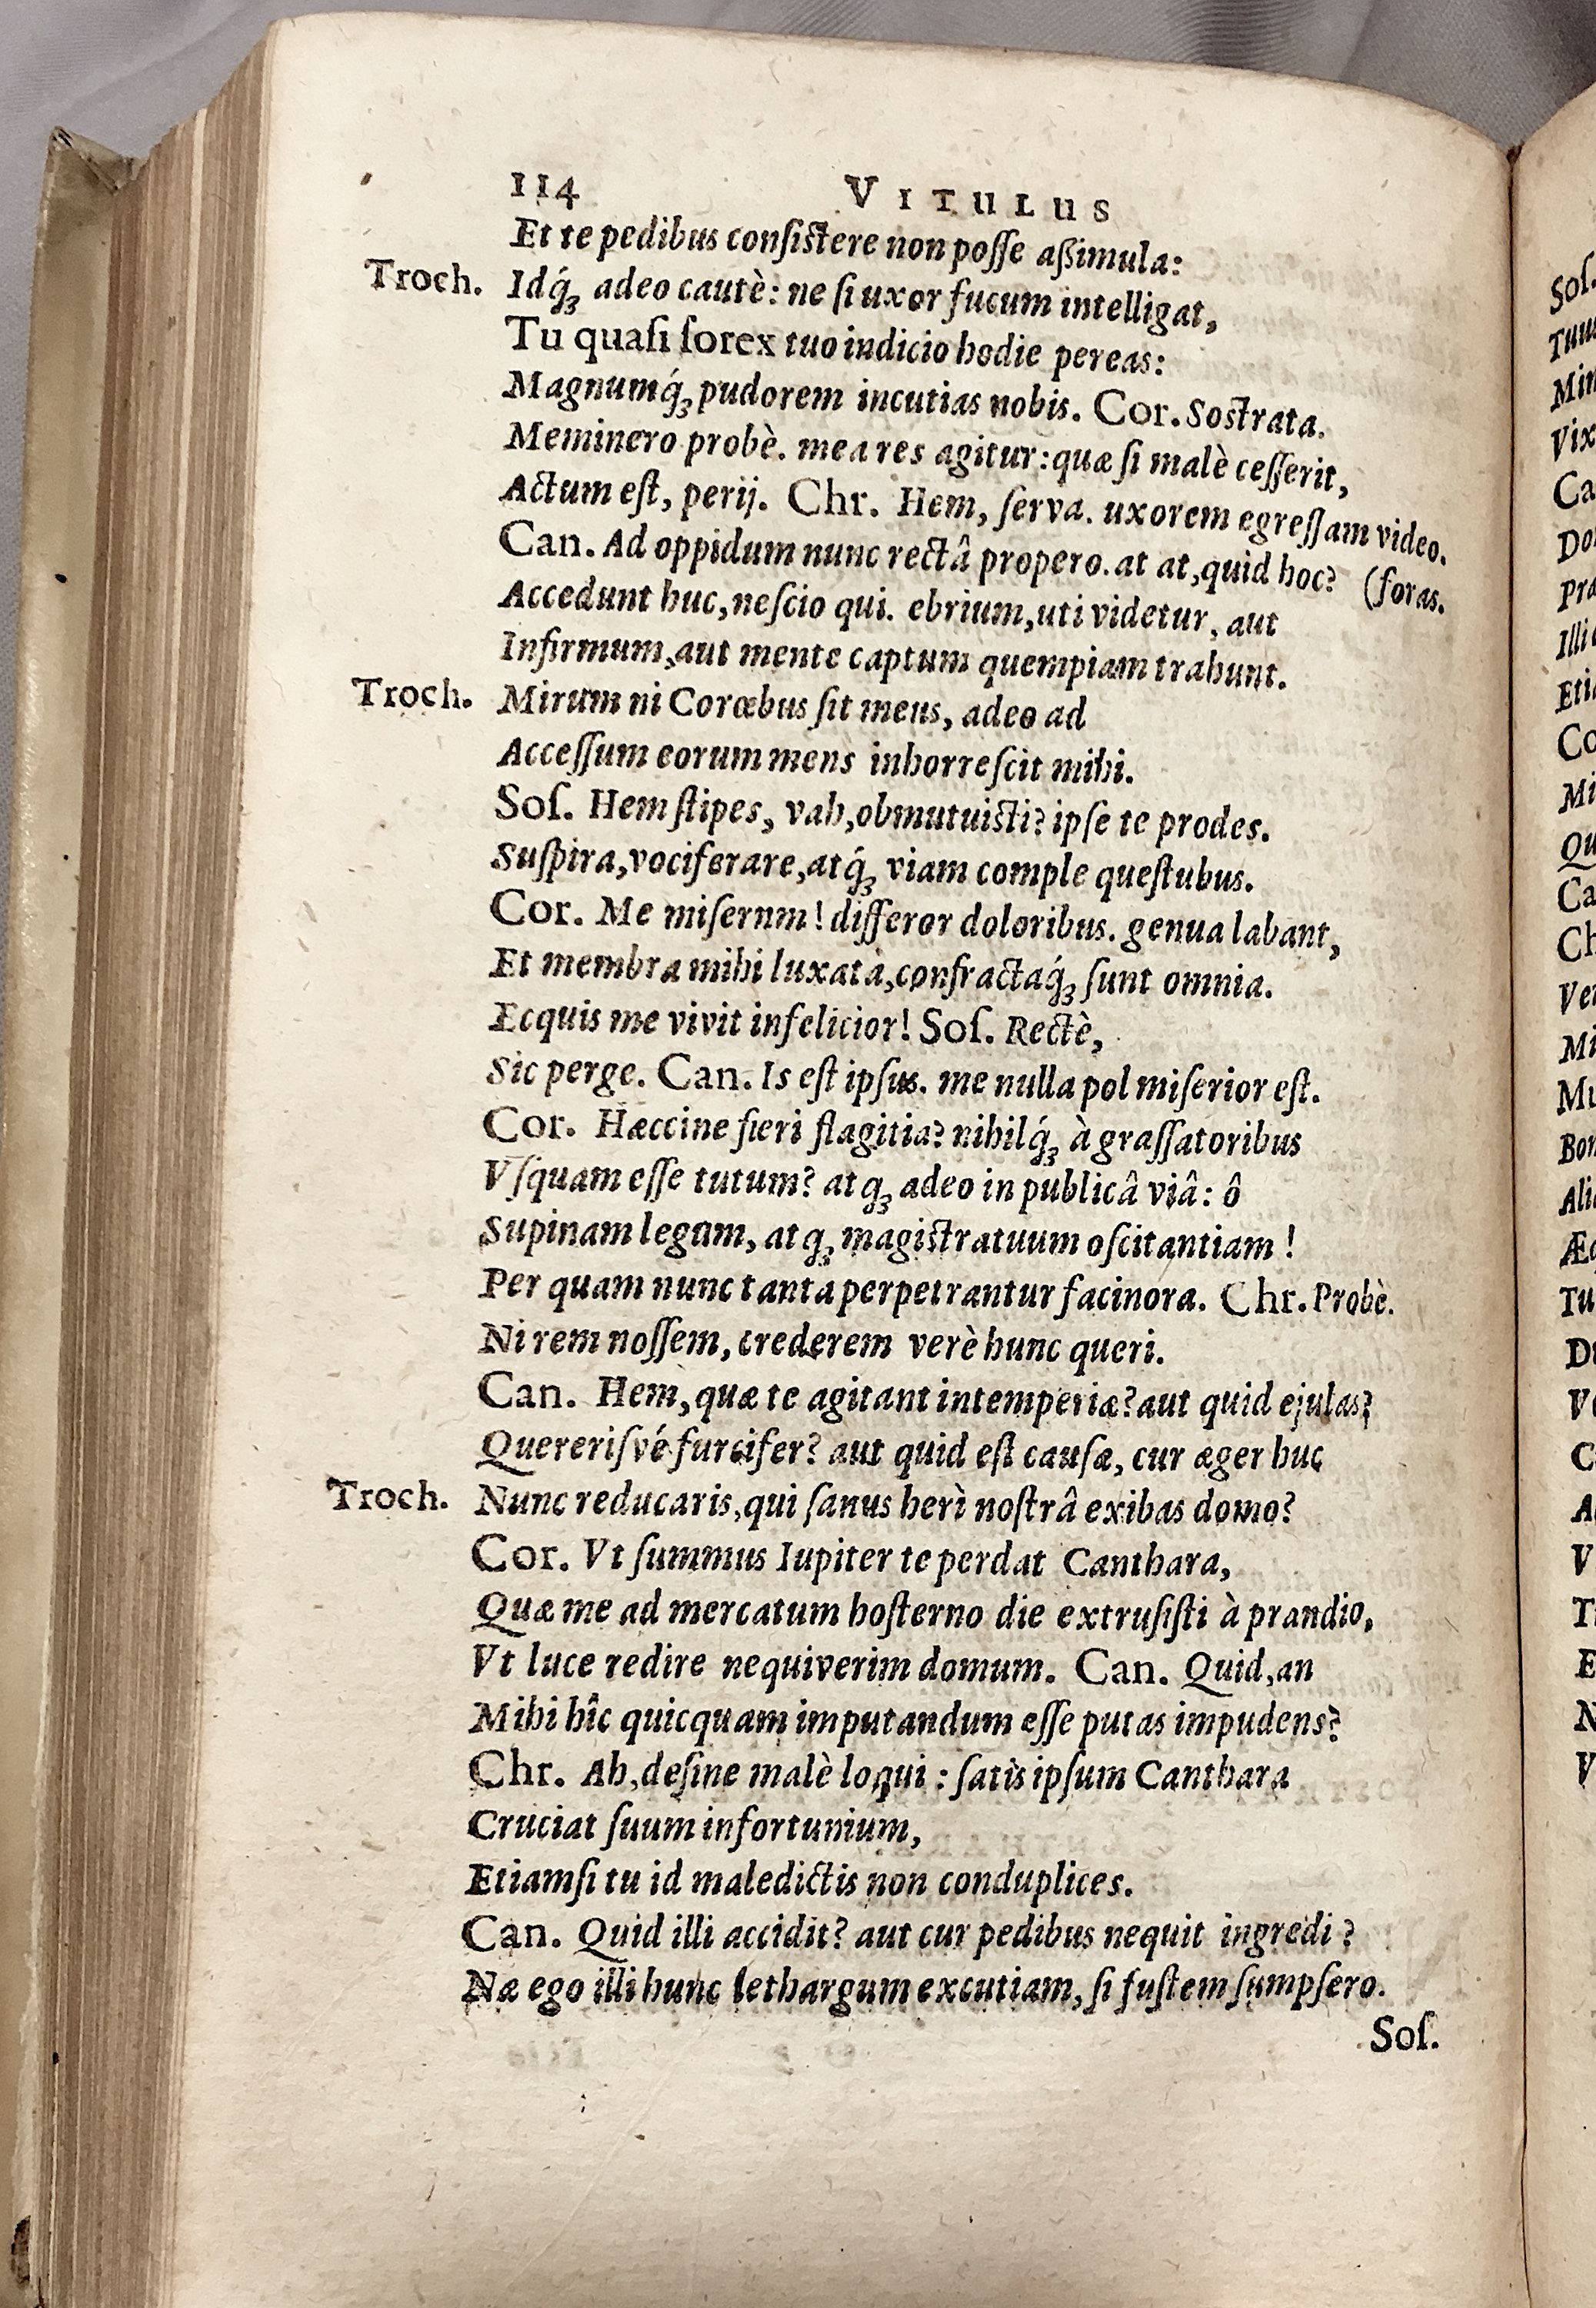 114 VITULUS
Et te pedibus consistere non posse aßimula:
Troch. Idq́ꝫ adeo cautè: ne si uxor fucum intelligat,
Tu quasi sorex tuo indicio hodie pereas:
Magnumq́ꝫ pudorem incutias nobis. Cor. Sostrata.
Meminero probè. mea res agitur: quæ si malè cesserit,
Actum est, perij. Chr. Hem, serva. uxorem egressam video.
Can. Ad oppidum nunc rectâ propero. at at, quid hoc? (foras.
Accedunt huc, nescio qui. ebrium, uti videtur, aut
Infirmum, aut mente captum quempiam trahunt.
Troch. Mirum ni Corœbus sit meus, adeo ad
Accessum eorum mens inhorrescit mihi.
Sos. Hem stipes, vah, obmutuisti? ipse te prodes.
Suspira, vociferare, atq́ꝫ viam comple questubus.
Cor. Me misernm! differor doloribus. genua labant,
Et membra mihi luxata, confractaq́ꝫ sunt omnia.
Ecquis me vivit infelicior! Sos. Rectè,
Sic perge. Can. Is est ipsus. me nulla pol miserior est.
Cor. Hæccine fieri flagitia? nihilq́ꝫ à grassatoribus
Vsquam esse tutum? atqꝫ adeo in publicâ viâ: ô
Supinam legum, atqꝫ magistratuum oscitantiam!
Per quam nunc tanta perpetrantur facinora. Chr. Probè.
Ni rem nossem, crederem verè hunc queri.
Can. Hem, quæ te agitant intemperiæ? aut quid ejulas?
Quererisvé furcifer? aut quid est causæ, cur æger huc
Troch. Nunc reducaris, qui sanus herì nostrâ exibas domo?
Cor. Vt summus Iupiter te perdat Canthara,
Quæ me ad mercatum hosterno die extrusisti à prandio,
Vt luce redire nequiverim domum. Can. Quid, an
Mihi hîc quicquam imputandum esse putas impudens?
Chr. Ah, desine malè loqui: satis ipsum Canthara
Cruciat suum infortunium,
Etiamsi tu id maledictis non conduplices.
Can. Quid illi accidit? aut cur pedibus nequit ingredi?
Næ ego illi hunc lethargum excutiam, si fustem sumpsero.
Sos.